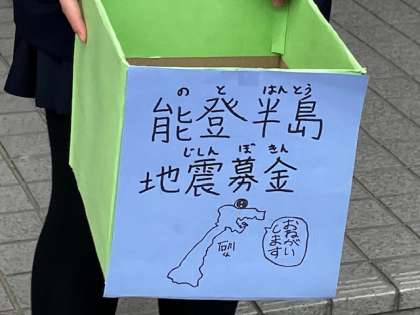 のとはんとう
能登半島
じしんぼきん
地震募金
石川
おねがい
します